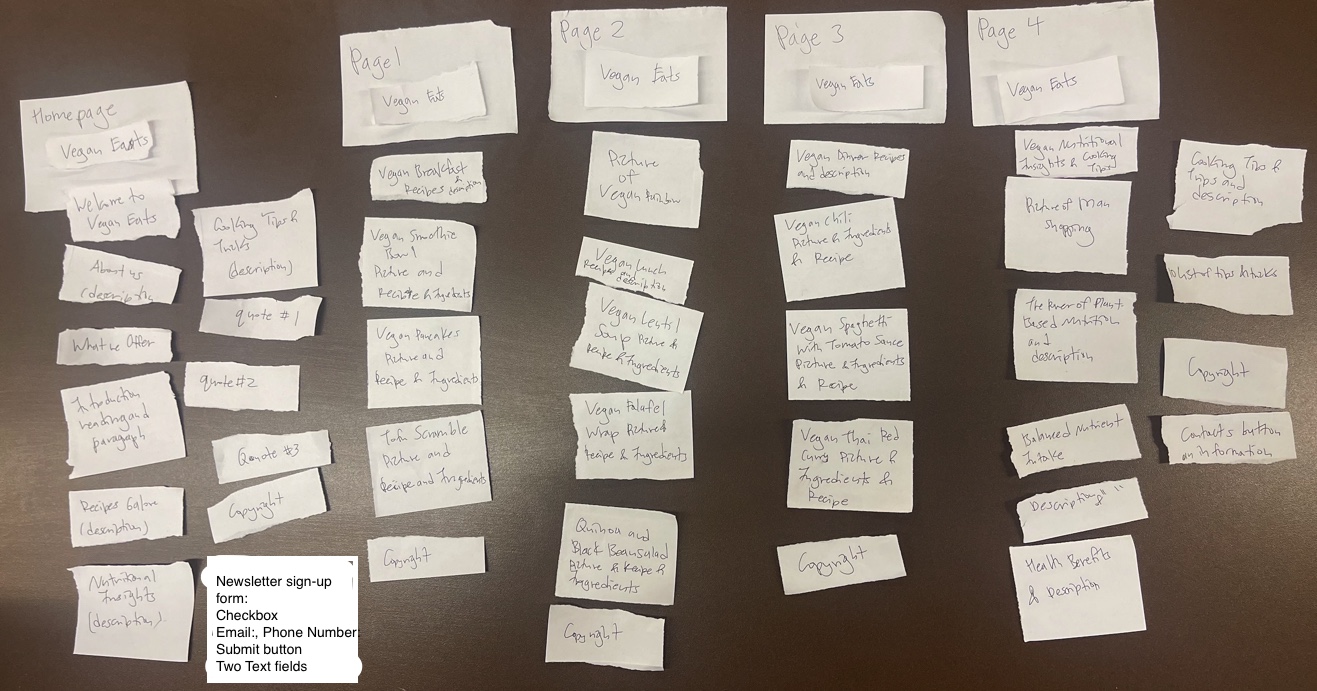 Homepage
Vegan Eaats
Welcome to
Vegan Eats
About us
(description
What we Offer
Introduction
heading and
paragraph
Recipes Galore
(description)
Nutritional
Insights
(description).
Cooking Tips &
Tricks
(description)
quote #1
quote #2
Qoute #3
Copyright
Newsletter sign-up
form:
Checkbox
Email:, Phone Number:
Submit button
Two Text fields
Page 1
Vegan Eats
Vegan Breakfast
Recipes description
Vegan Smothie
Bowl
Picture and
Recipe & Ingredients
Vegan Pancakes
Picture and
Recipe & Ingredients
Tofu Scramble
Picture and
Recipe and Ingredients
Copyright
Page 2
Vegan Eats
Picture
of
Vegan Rainbow
Vegan Lunch
Recipes and
description
Vegan Lentil
Soup Picture &
Recipe & Ingredients
Vegan Falafel
Wrap Picture &
Recipe & Ingredients
Quinoa and
Black Bean Salad
Picture & Recipe &
Ingredients
Copyright
Page 3
Vegan Eats
Vegan Dinner Recipes
and description
Vegan Chili
Picture & Ingredients
& Recipe
Vegan Spaghetti
with Tomato Sauce
Picture & Ingredients
& Recipe
Vegan Thai Red
Curry Picture &
Ingredients &
Recipe
Copyright
Page 4
Vegan Eats
Vegan Nutritional
Insights & Cooking
Tips
Picture of Man
shopping
The Power of Plant-
Based Nutrition
and
description
Balanced Nutrient
Intake
Description
Health Benefits
& Description
Cooking Tips &
Trips and
description
list of tips & tricks
Copyright
Contacts button
an information